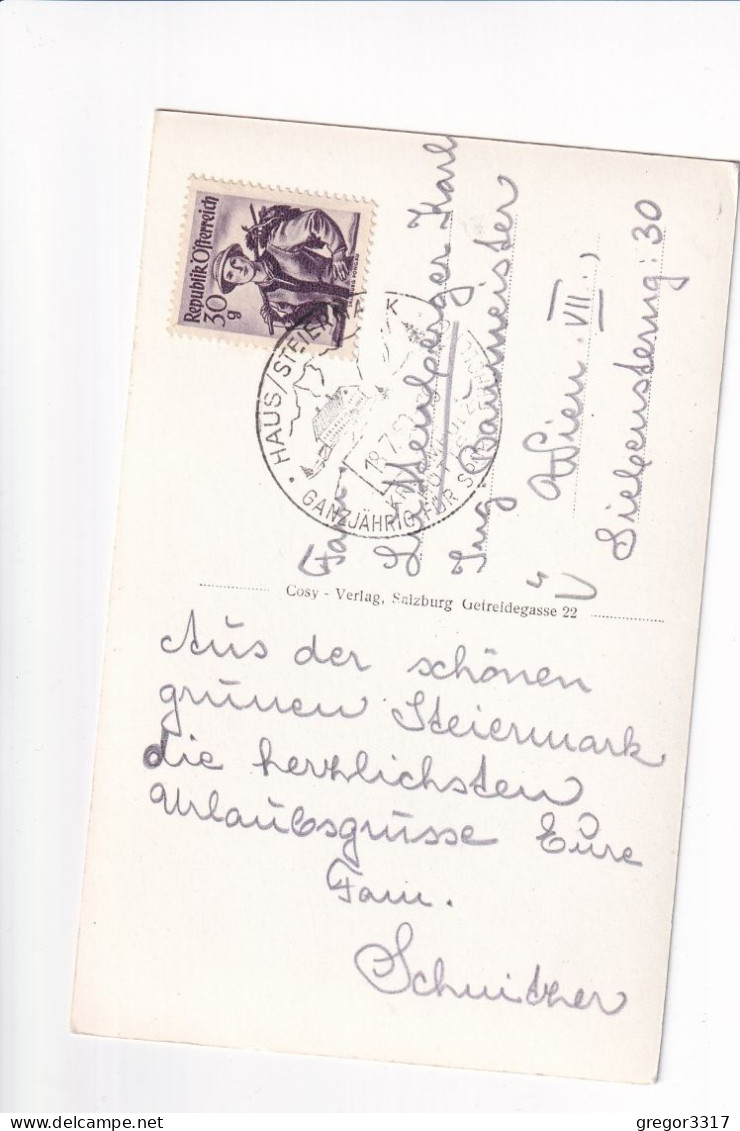 Republik Österreich
30
g
HAUS/STEIERMARK
18.7.
GANZJÄHRIG FÜR
Fam.
Karl
Ing Baumeister
Wien. VII.,
Siebensterng: 30
Cosy - Verlag, Salzburg Getreidegasse 22
Aus der schönen
grünen Steiermark
die herzlichsten
Urlaubsgrüsse Eure
Fam.
gregor3317